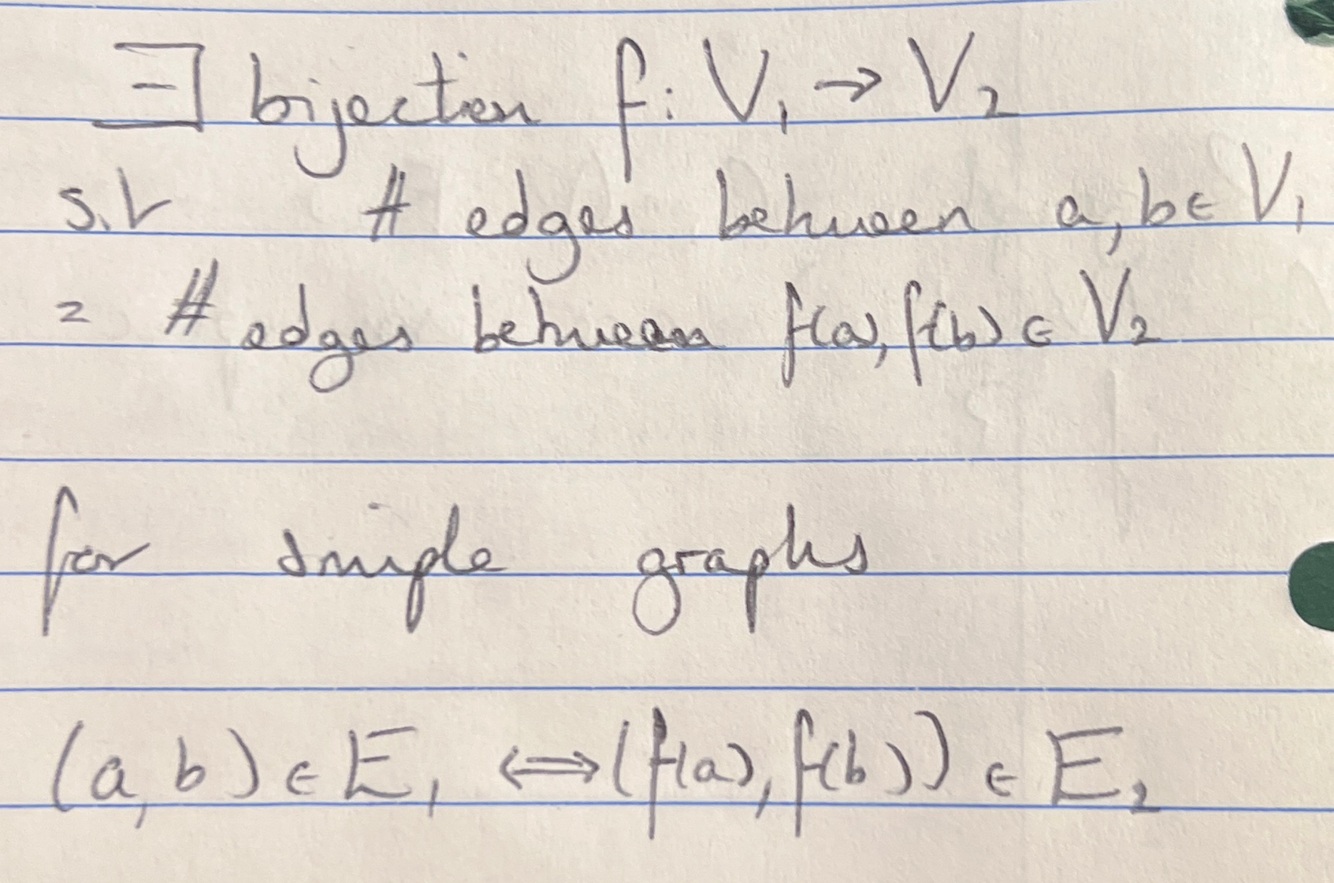 ∃ bijection f: V₁ → V₂
s.t # edges between a, b ∈ V₁
= # edges between f(a), f(b) ∈ V₂
for simple graphs
(a, b) ∈ E₁ ⟺ (f(a), f(b)) ∈ E₂